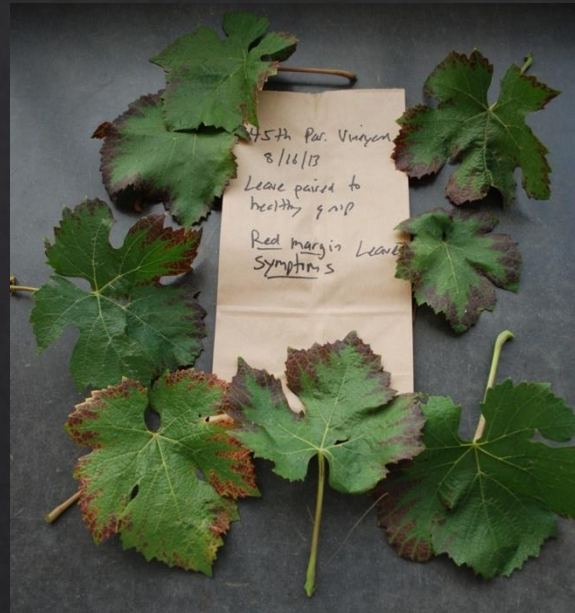 45th Par. Vinyard
8/16/13
Leave paired to
healthy grap
Red margin Leave
Symptoms